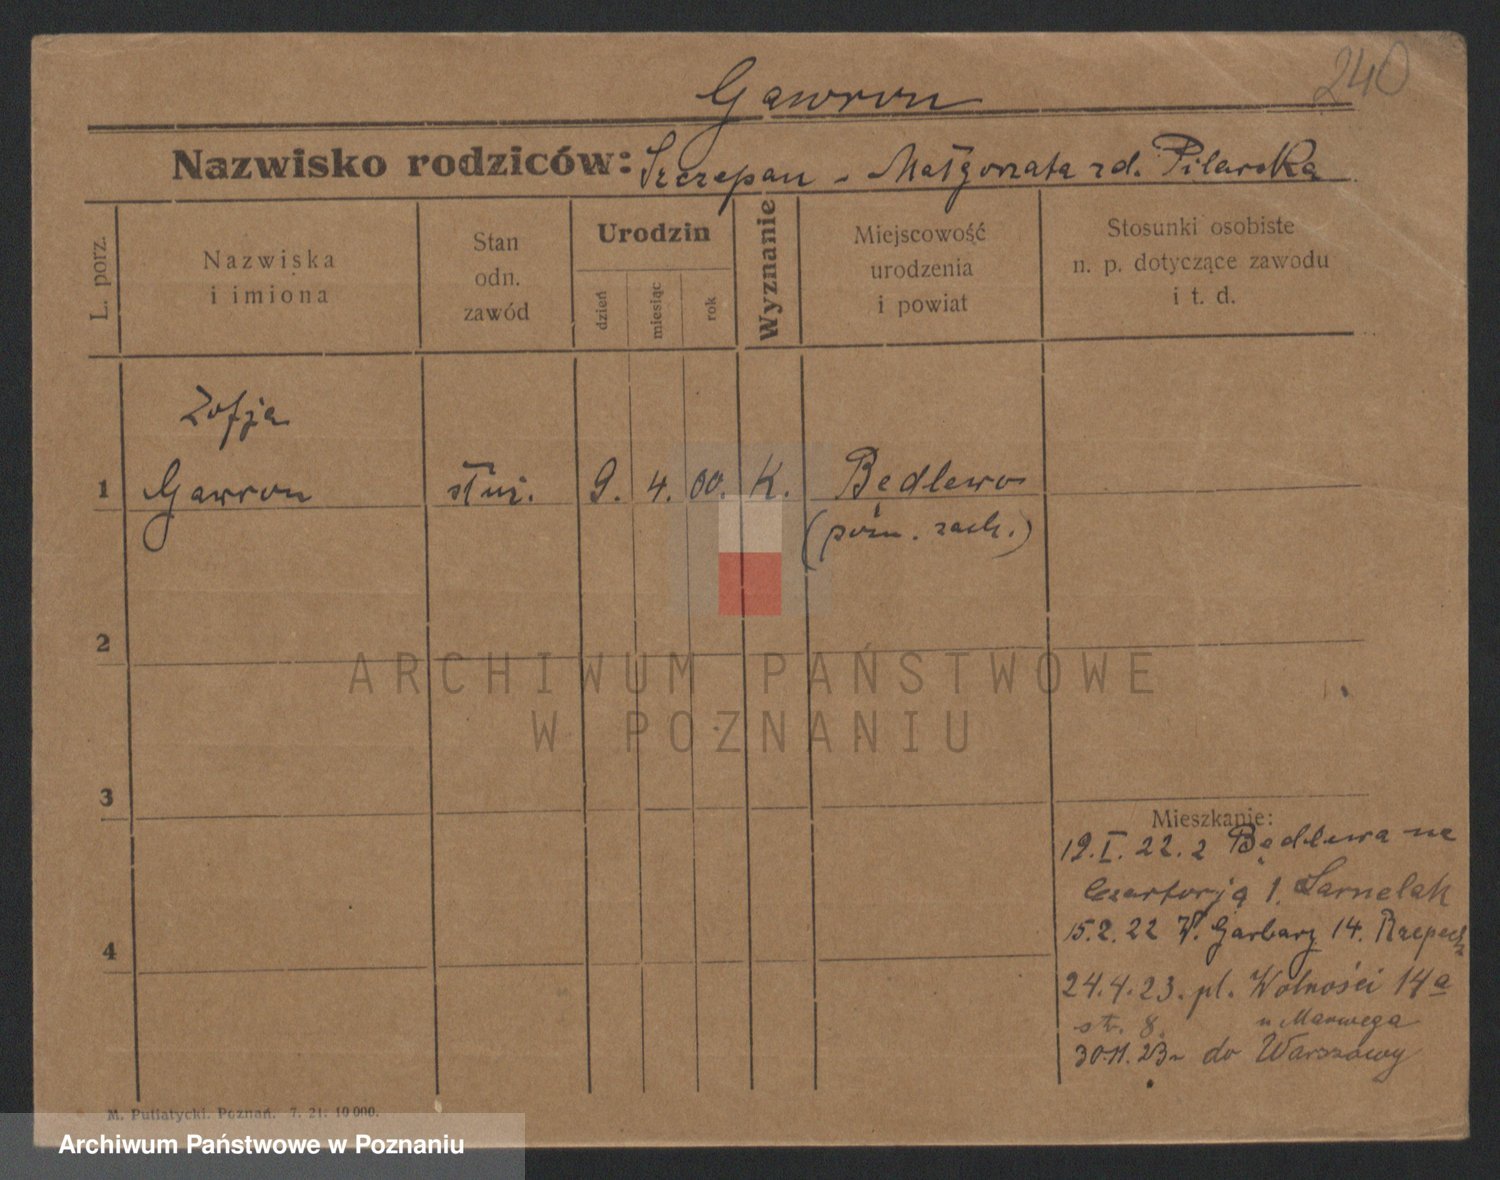 240
Gawron
Nazwisko rodziców: Szczepan - Małgorzata zd. Pilarska
L. porz.
Nazwiska
i imiona
Stan
odn.
zawód
Urodzin
dzień
miesiąc
rok
Wyznanie
Miejscowość
urodzenia
i powiat
Stosunki osobiste
n. p. dotyczące zawodu
i t. d.
Zofja
1 Gawron służ. 9. 4. 00. K. Będlewo
(pozn. zach.)
2
ARCHIWUM PAŃSTWOWE
W POZNANIU
3
Mieszkanie:
19.I.22. z Będlewa na
Czartorją 1. Sarnelak
4
15.2.22 W. Garbary 14.
24.4.23. pl. Wolności 14a
str. 8. u Marwega
30.11.23 do Warszawy
M. Putiatycki. Poznań. 7. 21. 10 000.
Archiwum Państwowe w Poznaniu